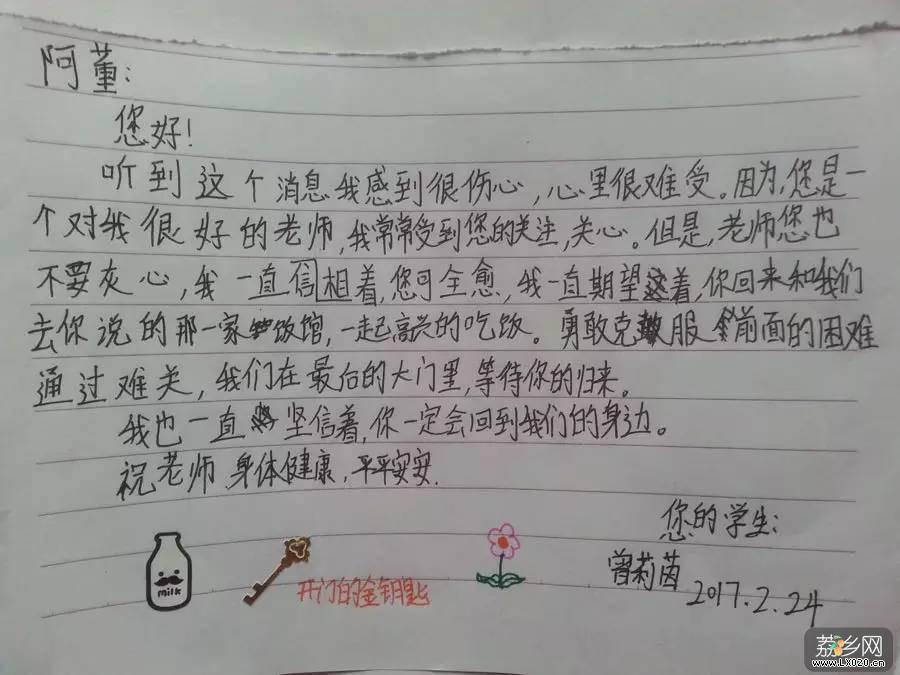 阿董:
您好!
听到这个消息我感到很伤心,心里很难受。因为,您是一
个对我很好的老师,我常常受到您的关注,关心。但是,老师您也
不要灰心,我一直信相着,您可全愈,我一直期望着,你回来和我们
去你说的那一家饭馆,一起高兴的吃饭。勇敢克服前面的困难
通过难关,我们在最后的大门里,等待你的归来。
我也一直坚信着,你一定会回到我们的身边。
祝老师身体健康,平平安安.
您的学生:
曾莉茵
2017.2.24
milk
开门的金钥匙
荔乡网
www.LX020.cn